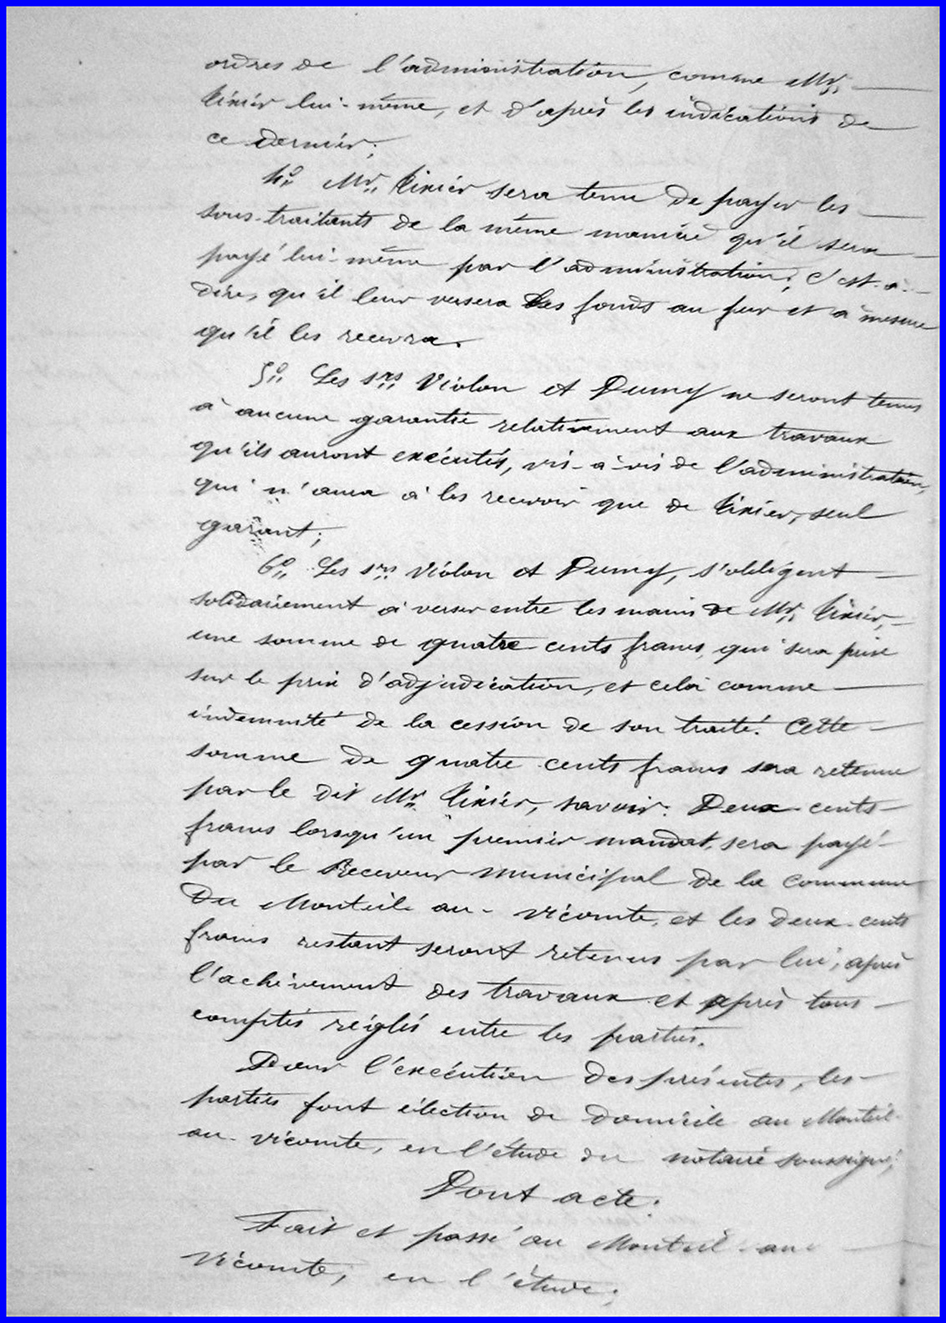 ordres de l'administration, comme Mr.
Tixier lui-même, et d'après les indications de
ce dernier;
4º Mr. Tixier sera tenu de payer les
sous-traitants de la même manière qu'il sera
payé lui-même par l'administration; c'est-à-
dire, qu'il leur versera les fonds au fur et à mesure
qu'il les recevra.
5º Les srs Violon et Dumy ne seront tenus
à aucune garantie relativement aux travaux
qu'ils auront exécutés, vis-à-vis de l'administration,
qui n'aura à les recevoir que de Tixier, seul
garant;
6º Les srs Violon et Dumy, s'obligent
solidairement à verser entre les mains de Mr. Tixier,
une somme de quatre cents francs, qui sera prise
sur le prix d'adjudication, et celà comme
indemnité de la cession de son traité. Cette
somme de quatre cents francs sera retenue
par le dit Mr. Tixier, savoir: Deux cents
francs lorsqu'un premier mandat sera payé
par le Receveur municipal de la commune
Du Monteil-au-vicomte, et les deux cents
francs restant seront retenus par lui, après
l'achèvement des travaux et après tous
comptes réglés entre les parties.
Pour l'exécution des présentes, les
parties font élection de domicile au Monteil-
au-vicomte, en l'étude du notaire soussigné,
Dont acte.
Fait et passé au Monteil-au
Vicomte, en l'étude;